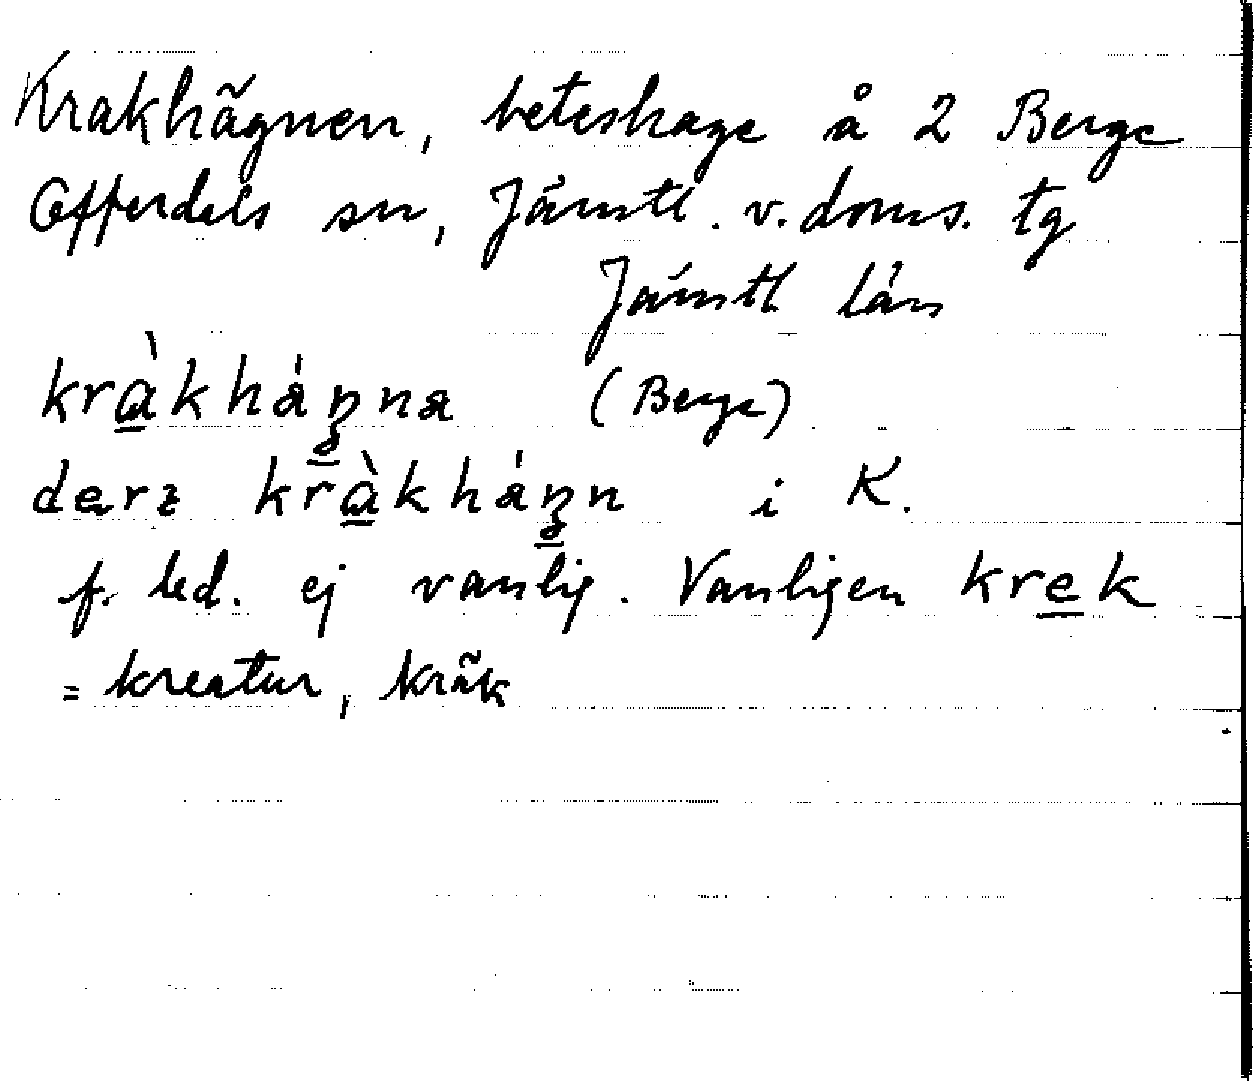 Krakhägnen, beteshage å 2 Berge
Offerdals sn, Jämtl. v. doms. tg
Jämtl län
kràkháŋna (Berge)
derz kràkháŋn i K.
f. led. ej vanlig. Vanligen krek
= kreatur, kräk